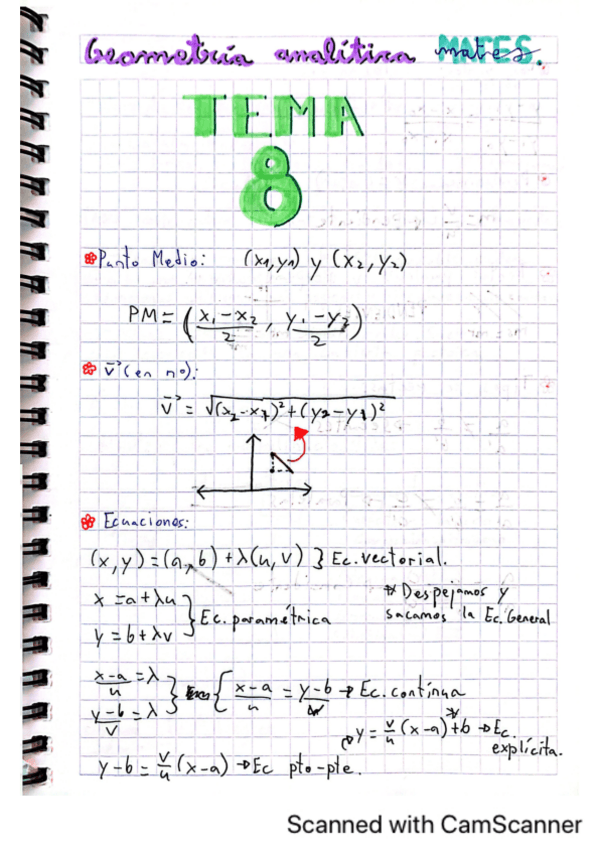 Geometría analítica mates.
TEMA
8
Punto Medio: (x1,y1) y (x2,y2)
PM = ( x1-x2 / 2 , y1-y2 / 2 )
v⃗ (en nº):
v⃗ = √(x2-x1)²+(y2-y1)²
Ecuaciones:
(x,y)=(a,b)+λ(u,v) } Ec. vectorial.
x=a+λu
y=b+λv } Ec. paramétrica
* Despejamos y
sacamos la Ec. General
x-a / u = λ
y-b / v = λ } { x-a / u = y-b / v → Ec. contínua
y = v/u (x-a)+b → Ec.
explícita.
y-b = v/u (x-a) → Ec pto-pte.
Scanned with CamScanner